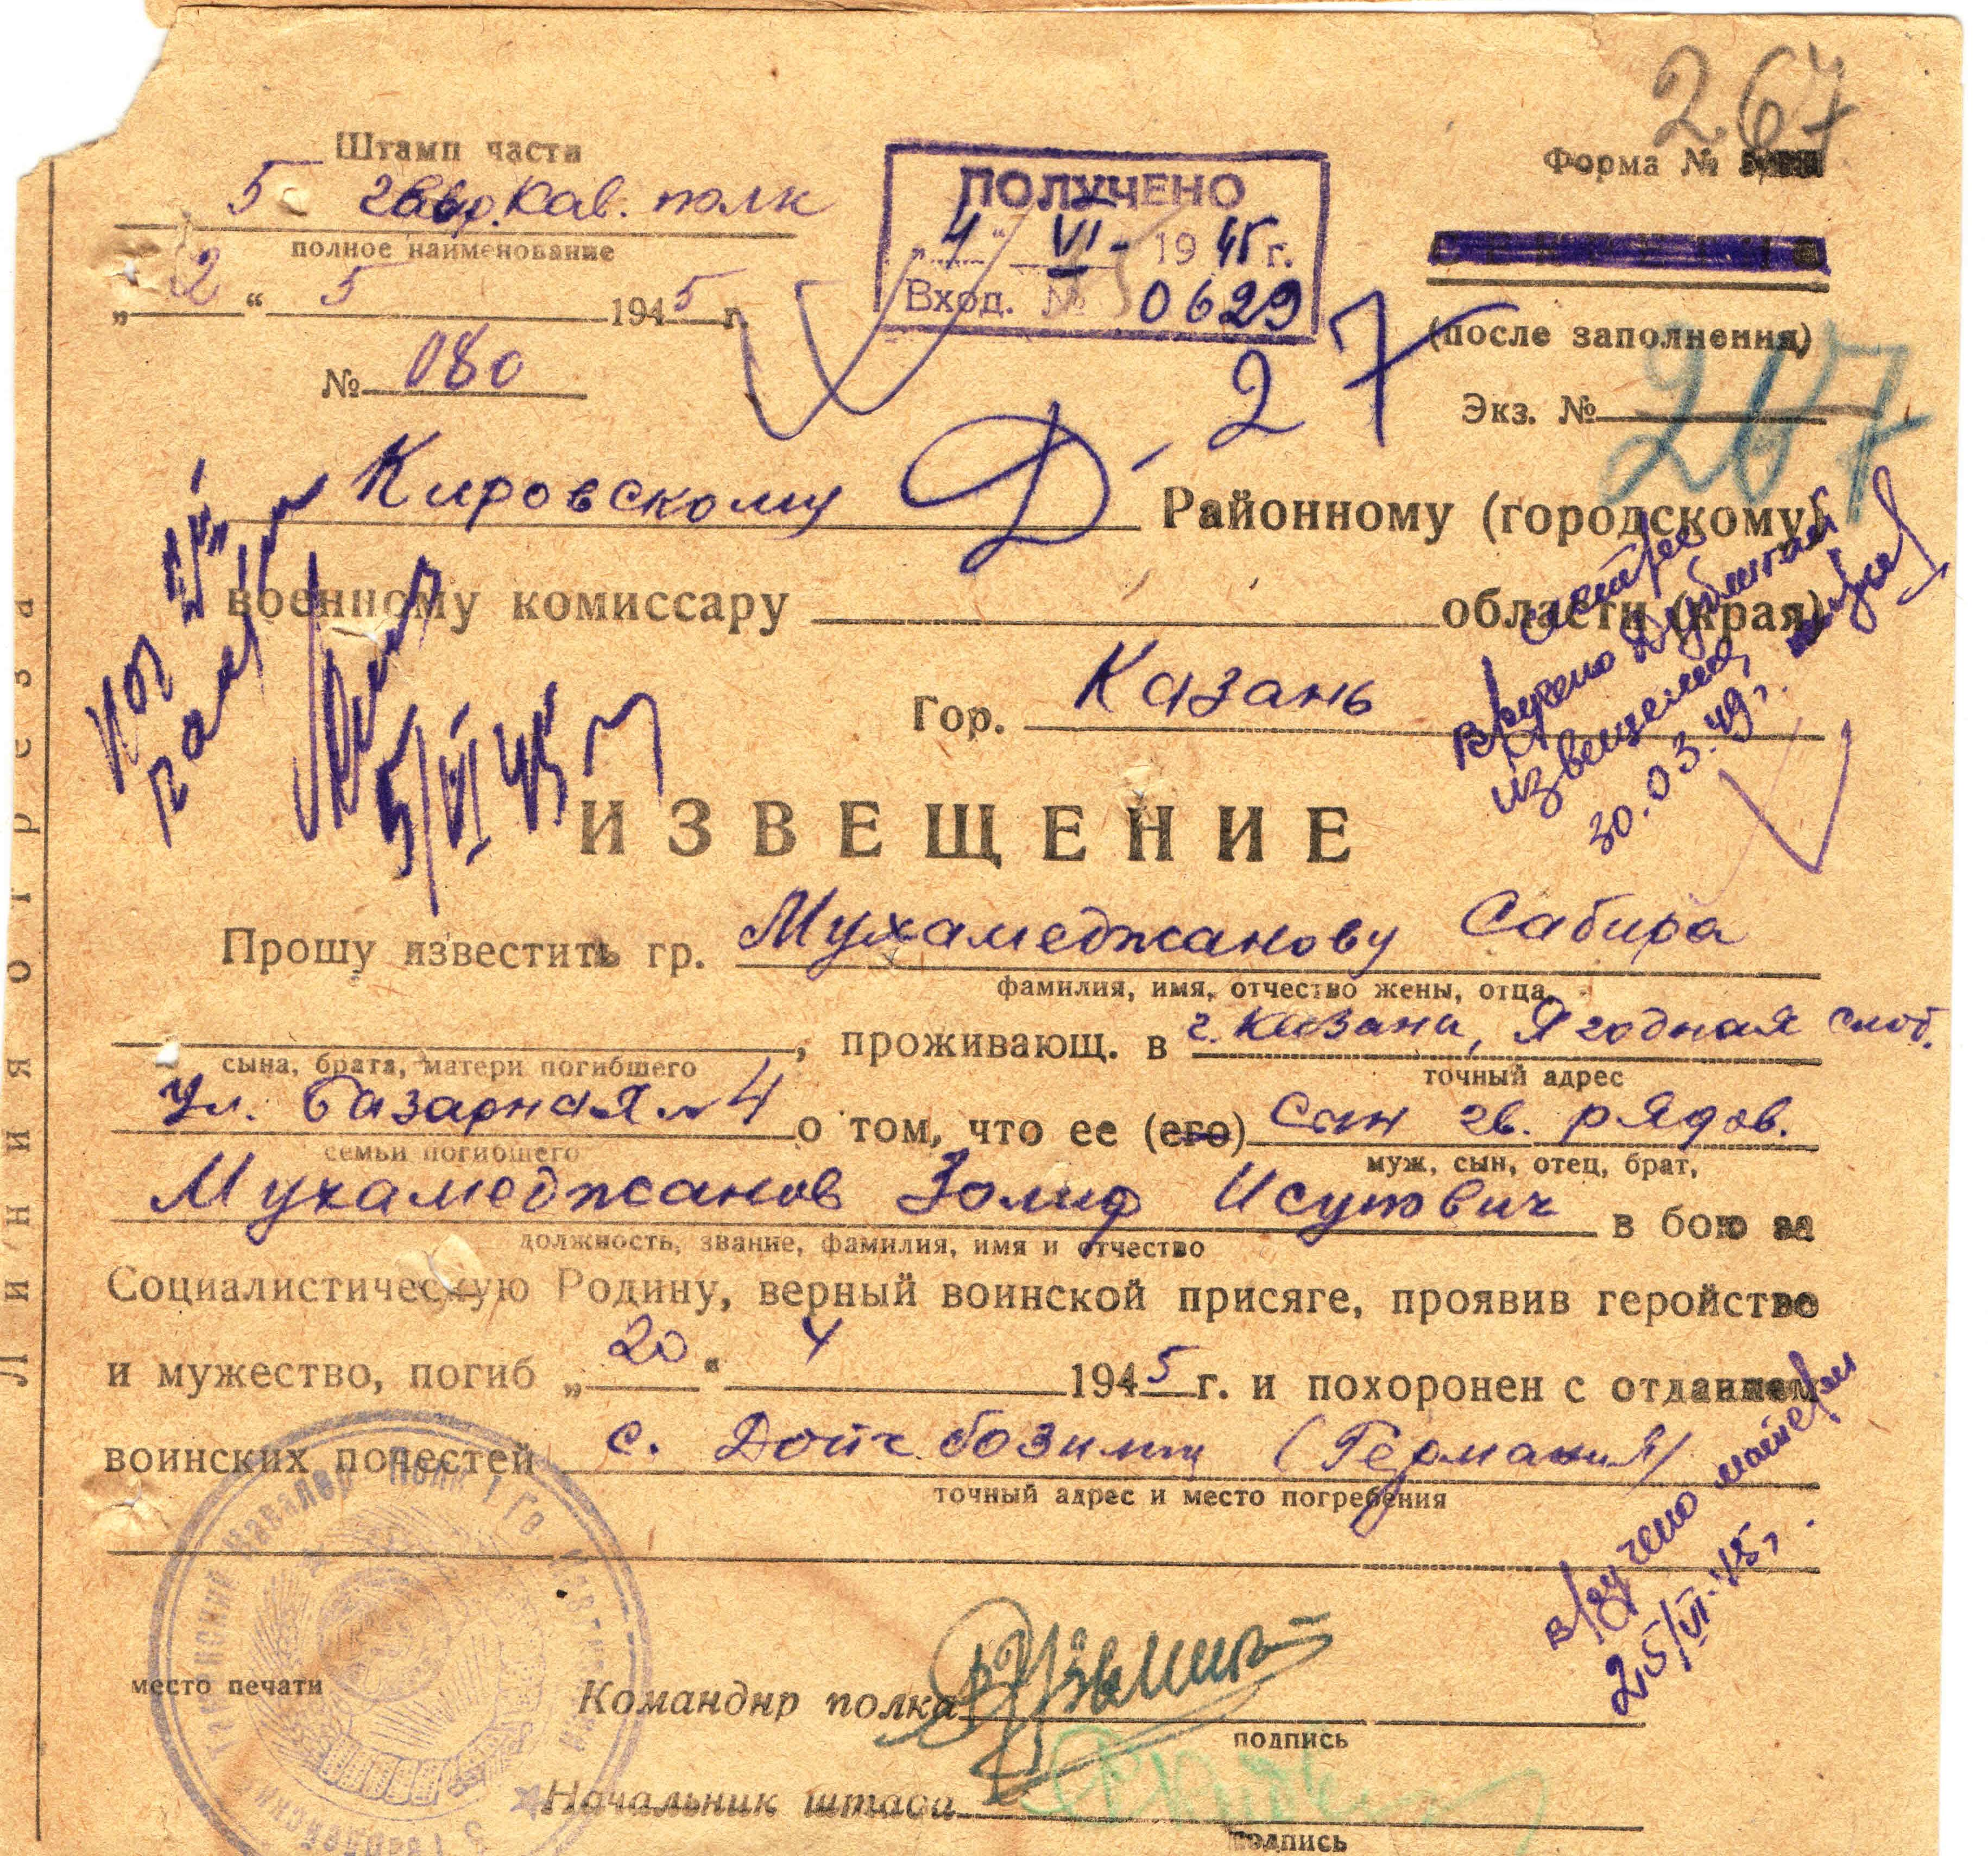 267
Штамп части
Форма №
5 гвар. Кав. полк
полное наименование
ПОЛУЧЕНО
„4“ VI - 1945 г.
Вход. № 0629
„2“ 5 1945 г.
№ 080
(после заполнения)
Экз. №
267
Д-27
Кировскому Районному (городскому)
военному комиссару области (края)
Гор. Казань
5/VI 45 г
вручено дубликат
извещения
30.03.49г.
ИЗВЕЩЕНИЕ
Прошу известить гр. Мухамеджанову Сабира
фамилия, имя, отчество жены, отца,
, проживающ. в г. Казани, Ягодная слоб.
сына, брата, матери погибшего
точный адрес
Ул. Базарная № 4 о том, что ее (его) сын гв. рядов.
семьи погибшего
муж, сын, отец, брат,
Мухамеджанов Золиф Исупович в бою за
должность, звание, фамилия, имя и отчество
Социалистическую Родину, верный воинской присяге, проявив геройство
и мужество, погиб „20“ 4 1945 г. и похоронен с отданием
воинских почестей с. Дойч бозимт (Германия)
точный адрес и место погребения
вручено матери
25/VI-45г.
место печати
Командир полка
подпись
Начальник штаба
подпись
Линия отреза